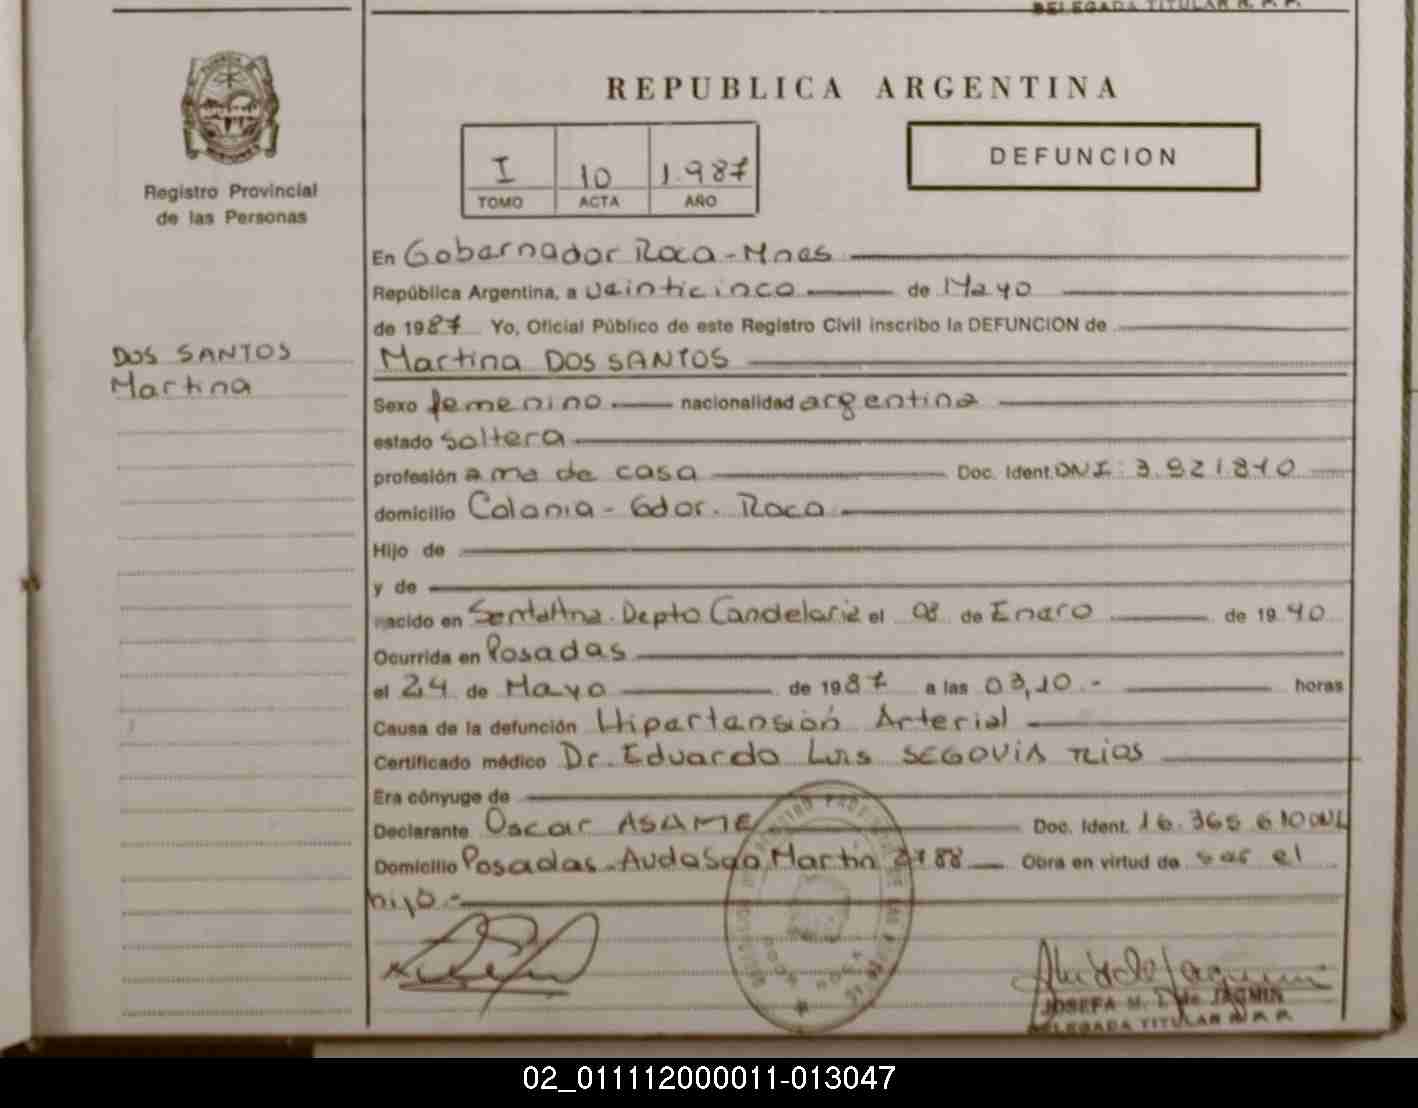 DELEGADA TITULAR R. P. P.
Registro Provincial
de las Personas
DOS SANTOS
Martina
REPUBLICA ARGENTINA
I 10 1.987
TOMO ACTA AÑO
DEFUNCION
En Gobernador Roca - Mnes
República Argentina, a veinticinco de Mayo
de 1987 Yo, Oficial Público de este Registro Civil inscribo la DEFUNCION de
Martina DOS SANTOS
Sexo femenino nacionalidad argentina
estado soltera
profesión ama de casa Doc. Ident. DNI: 3.921.810
domicilio Colonia - Gdor. Roca
Hijo de
y de
nacido en Santa Ana. Depto Candelaria el 08 de Enero de 1940
Ocurrida en Posadas
el 24 de Mayo de 1987 a las 03,10.- horas
Causa de la defunción Hipertensión Arterial
Certificado médico Dr. Eduardo Luis SEGOVIA RIOS
Era cónyuge de
Declarante Oscar ASAME Doc. Ident. 16.365.610 DNI
Domicilio Posadas - Avda San Martin 2188 Obra en virtud de ser el
hijo.-
JOSEFA M. T. de JAQMIN
DELEGADA TITULAR R. P. P.
02_011112000011-013047